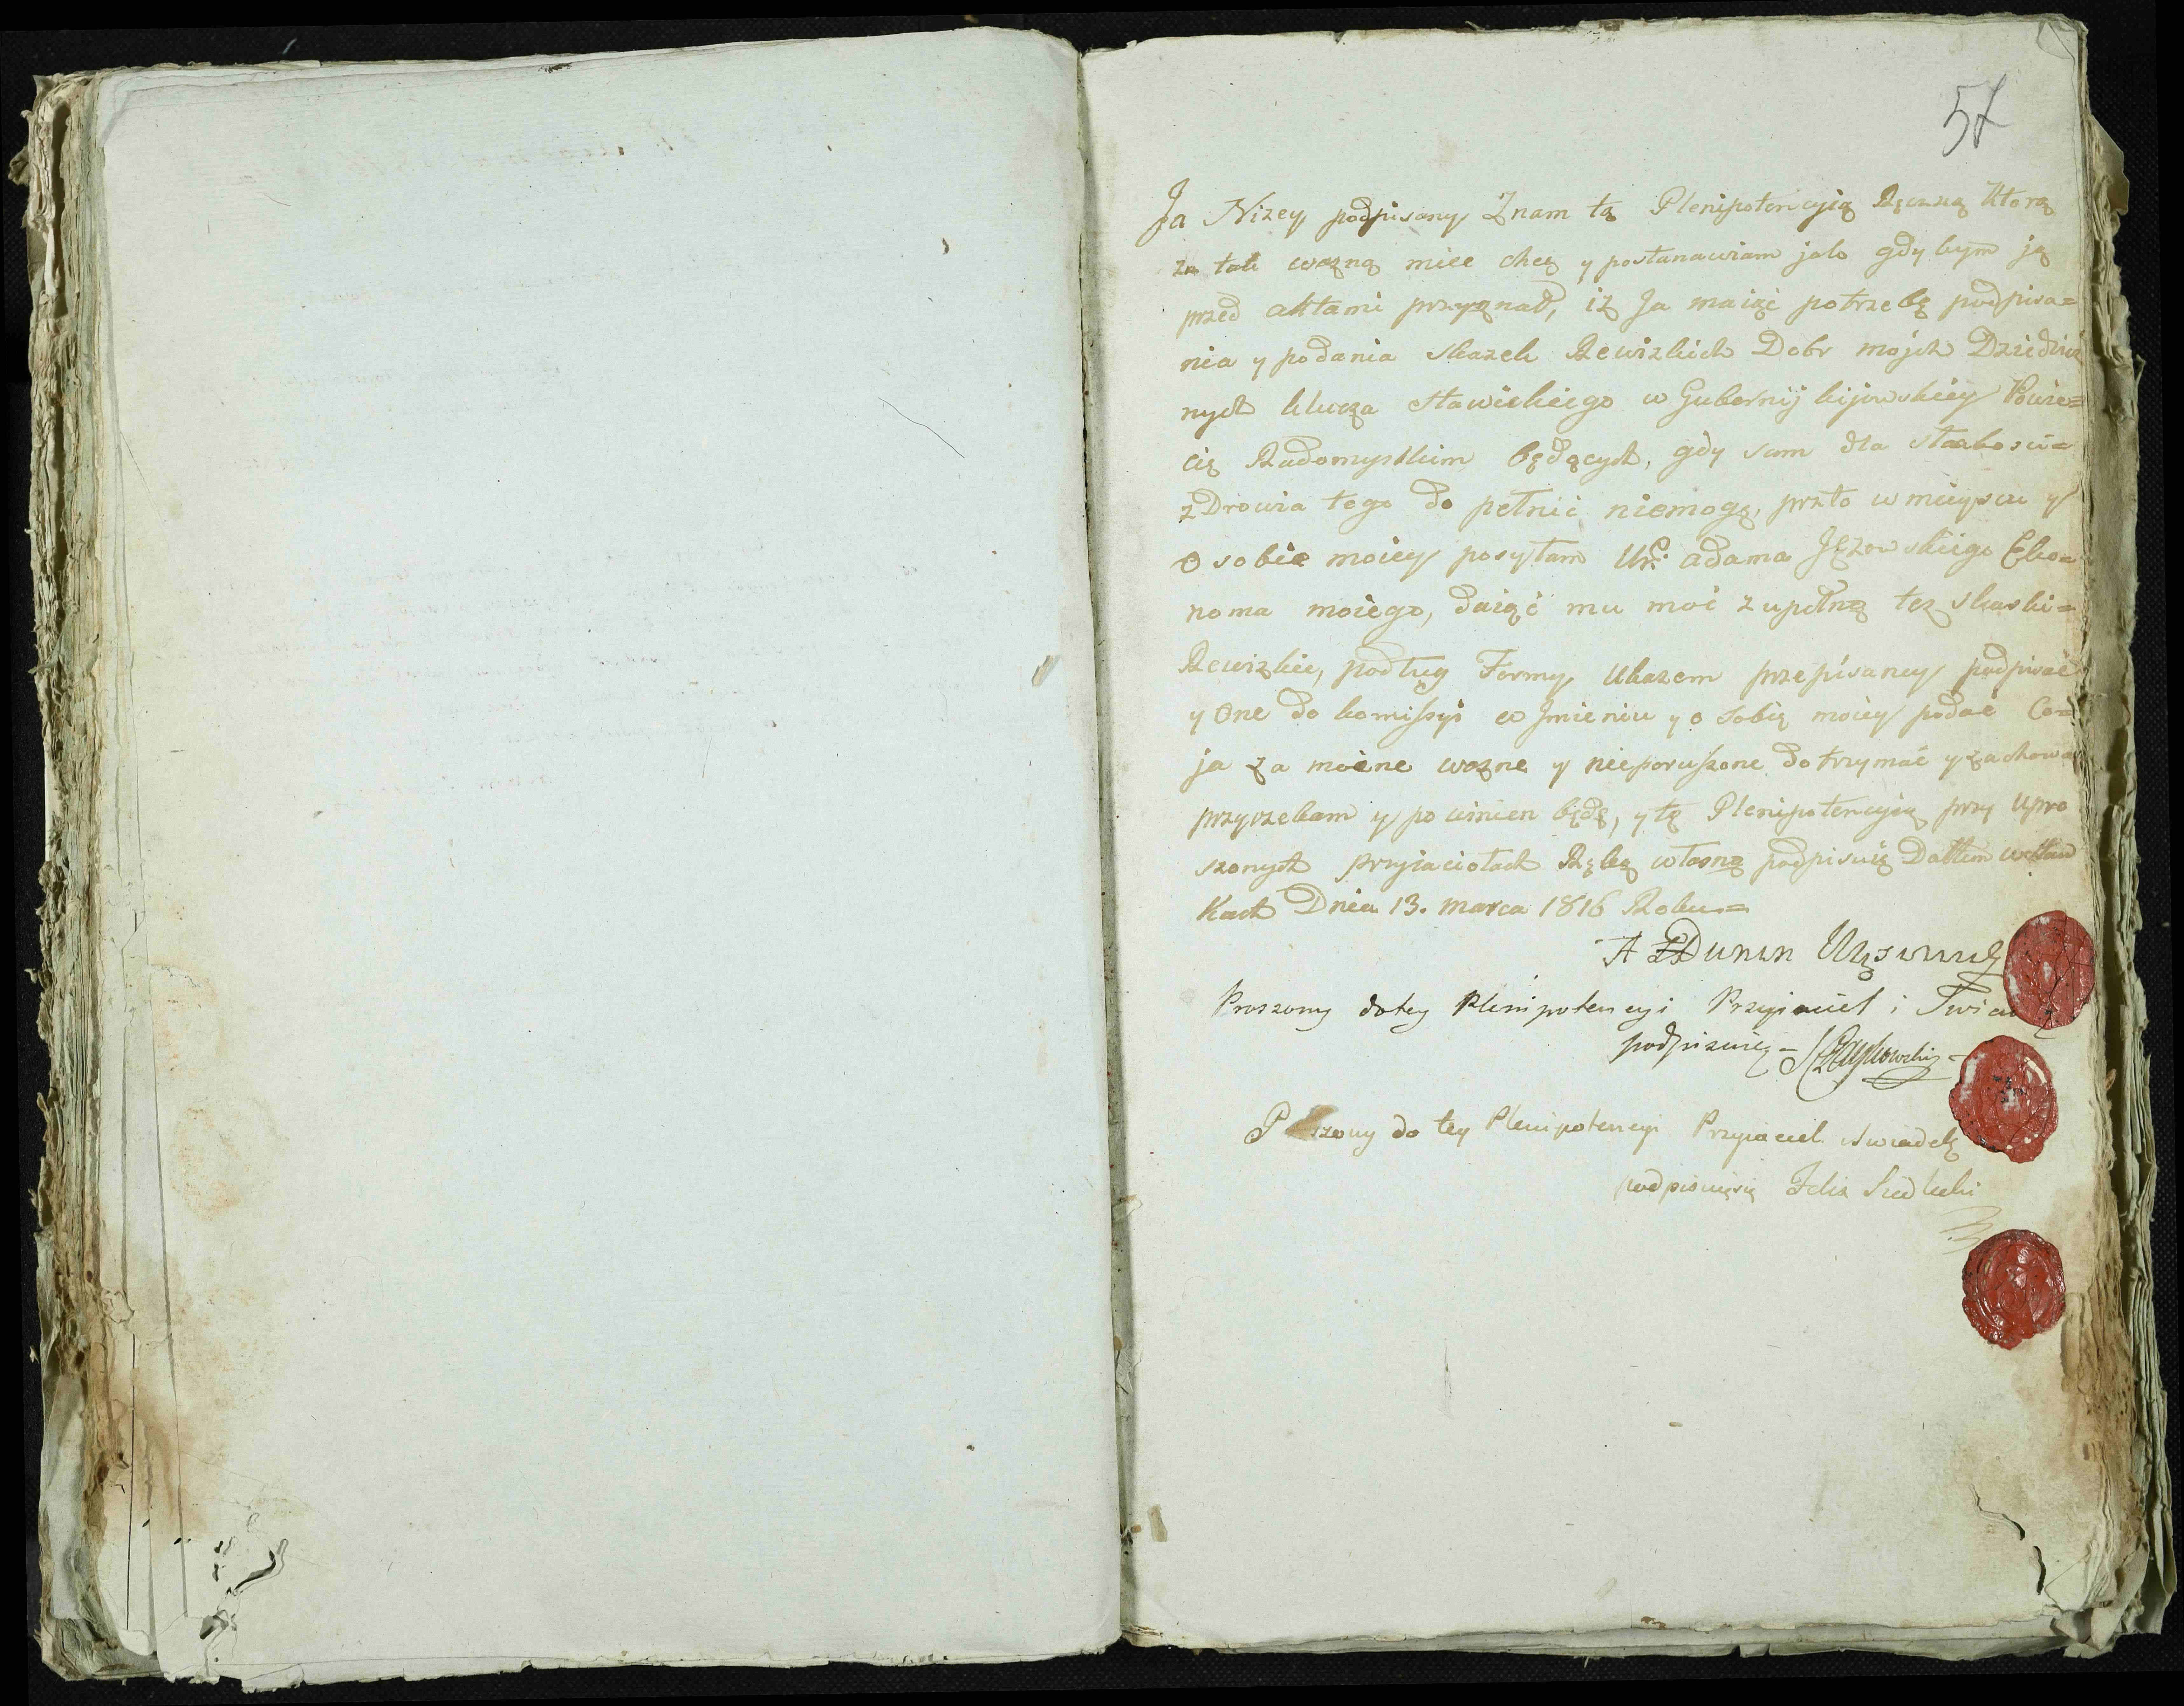 57
Ja Niżey podpisany Znam tą Plenipotencyią Ręczną Którą
za tak ważną miec chcę y postanawiam jako gdy bym ją
przed aktami przyznał, iż Ja maiąc potrzebę podpisa=
nia y podania skazek Rewizkich Dobr mojch Dziedzicz
nych klucza Stawickiego w Gubernij kijowskiey Powie=
cię Radomyslkim będących, gdy sam dla słabosci=
zDrowia tego do pełnić niemogę, przto w mieyscu y
O sobie moiey posyłam Ur: adama Jęzowskiego Eko=
noma moiego, daiąc mu moc zupełną tez skaski=
Rewizkie, podług Formy Ukazem przepisaney podpisać
y One do komissyi w Jmieniu y o sobię moiey podać Co=
ja za mocne wazne y nieporuszone dotrzymać y zachowa
przyrzekam y powinien będę, y tę Plenipotencyią przy Upro
szonych przyiaciołach Ręką własną podpisuię Dattum wStaw
Kach Dnia 13. marca 1816 Roku=
A Dunin
Proszony do tey Plenipotencyi Przyiaciel i
podpisuię
szony do tey Plenipotencyi Przyiaciel iswiadek
podpisuię się Felix Siedlecki